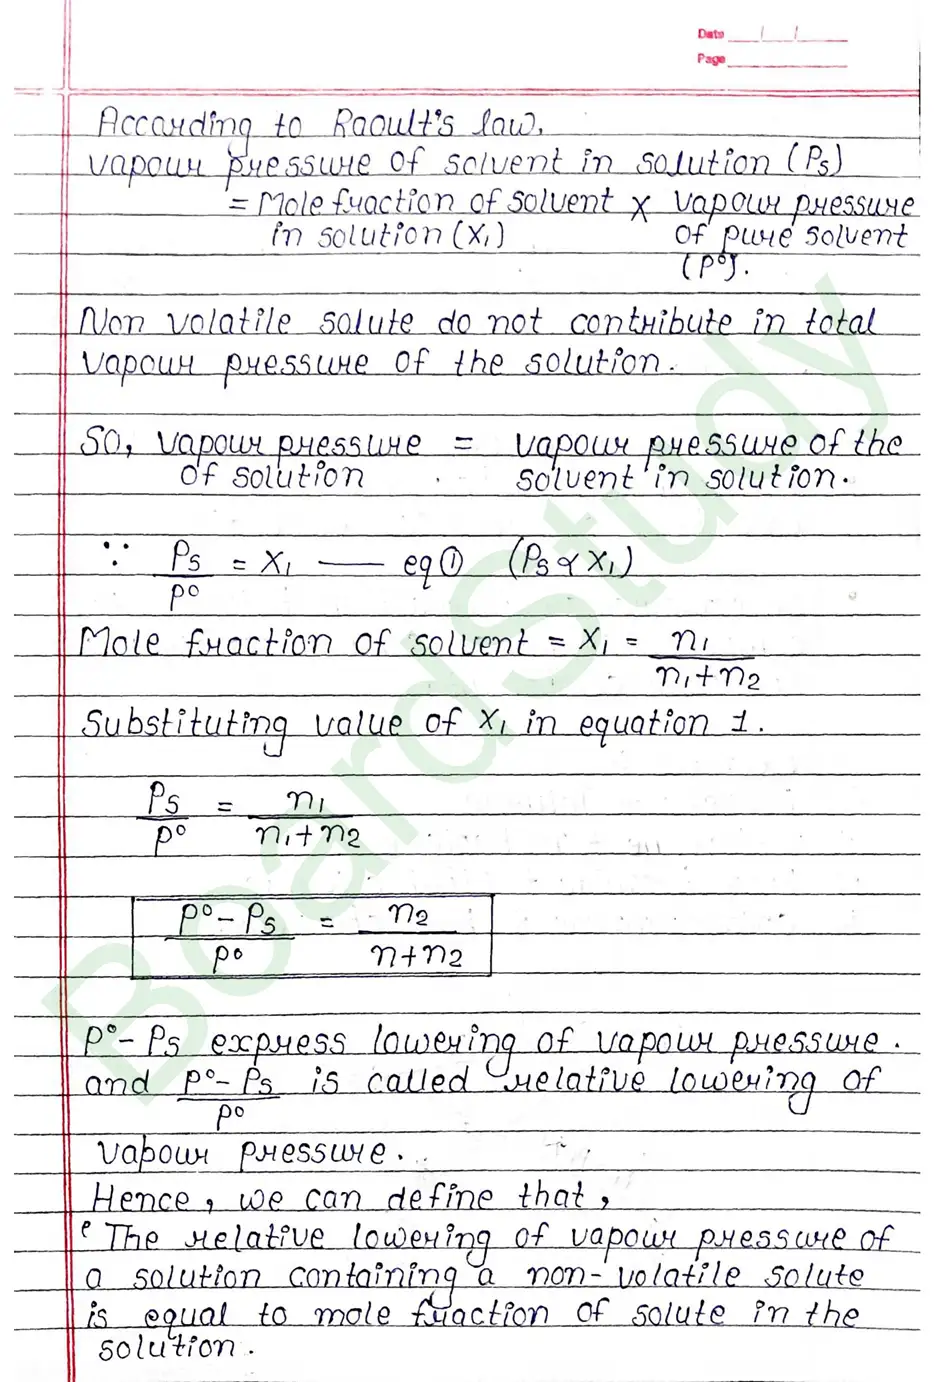 Date __/__/__
Page
According to Raoult's law,
Vapour pressure of solvent in solution (Ps)
= Mole fraction of solvent X vapour pressure
in solution (X₁) of pure solvent
(P°).
Non volatile solute do not contribute in total
vapour pressure of the solution.
So, vapour pressure = vapour pressure of the
of solution solvent in solution.
∵ Ps/P° = X₁ —— eq① (Ps ∝ X₁)
Mole fraction of solvent = X₁ = n₁/n₁+n₂
Substituting value of X₁ in equation 1.
Ps/P° = n₁/n₁+n₂
P°-Ps/P° = n₂/n+n₂
P°-Ps express lowering of vapour pressure.
and P°-Ps/P° is called relative lowering of
vapour pressure.
Hence, we can define that,
'The relative lowering of vapour pressure of
a solution containing a non-volatile solute
is equal to mole fraction of solute in the
solution.
BoardStudy